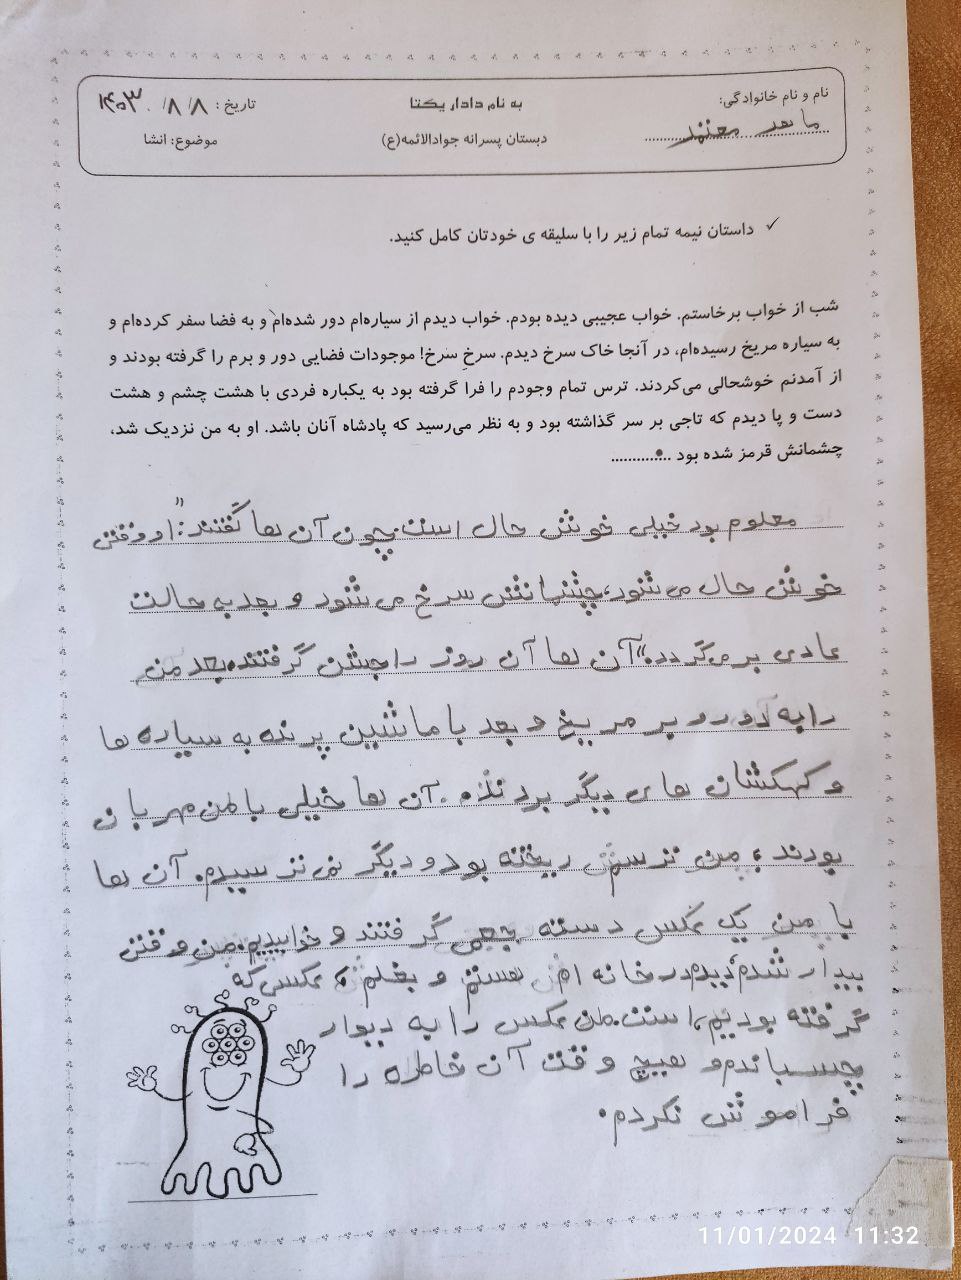 نام و نام خانوادگی:
به نام دادار یکتا
تاریخ: ۱۴۰۳/۸/۸
معتمد
دبستان پسرانه جوادالائمه(ع)
موضوع: انشا
✓ داستان نیمه تمام زیر را با سلیقه ی خودتان کامل کنید.
شب از خواب برخاستم. خواب عجیبی دیده بودم. خواب دیدم از سیاره‌ام دور شده‌ام و به فضا سفر کرده‌ام و
به سیاره مریخ رسیده‌ام، در آنجا خاک سرخ دیدم. سرخِ سرخ! موجودات فضایی دور و برم را گرفته بودند و
از آمدنم خوشحالی می‌کردند. ترس تمام وجودم را فرا گرفته بود به یکباره فردی با هشت چشم و هشت
دست و پا دیدم که تاجی بر سر گذاشته بود و به نظر می‌رسید که پادشاه آنان باشد. او به من نزدیک شد،
چشمانش قرمز شده بود .............
معلوم بود خیلی خوش حال است.چون آن ها گفتند:"او وقتی
خوش حال می شود،چشمانش سرخ می شود و بعد به حالت
عادی بر می گردد."آن ها آن روز را جشن گرفتند.بعد من
را به دورو بر مریخ و بعد با ماشین پرنده به سیاره ها
و کهکشان های دیگر بردند. آن ها خیلی با من مهربان
بودند، من ترسم ریخته بود و دیگر نمی ترسیدم. آن ها
با من یک عکس دسته جمعی گرفتند و خوابیدیم.من وقتی
بیدار شدم،دیدم در خانه ام هستم و بغلم، عکسی که
گرفته بودیم، است.من عکس را به دیوار
چسباندم و هیچ وقت آن خاطره را
فراموش نکردم.
11/01/2024 11:32